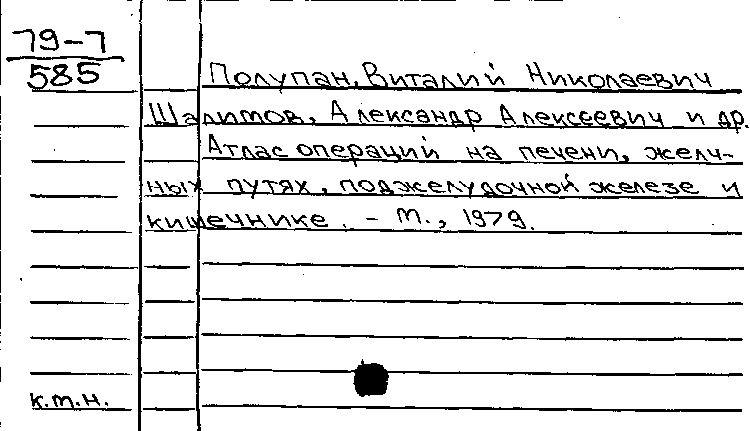 79-7
585
Полупан, Виталий Николаевич
Шалимов, Александр Алексеевич и др.
Атлас операций на печени, желч-
ных путях, поджелудочной железе и
кишечнике. - М., 1979.
к.т.н.